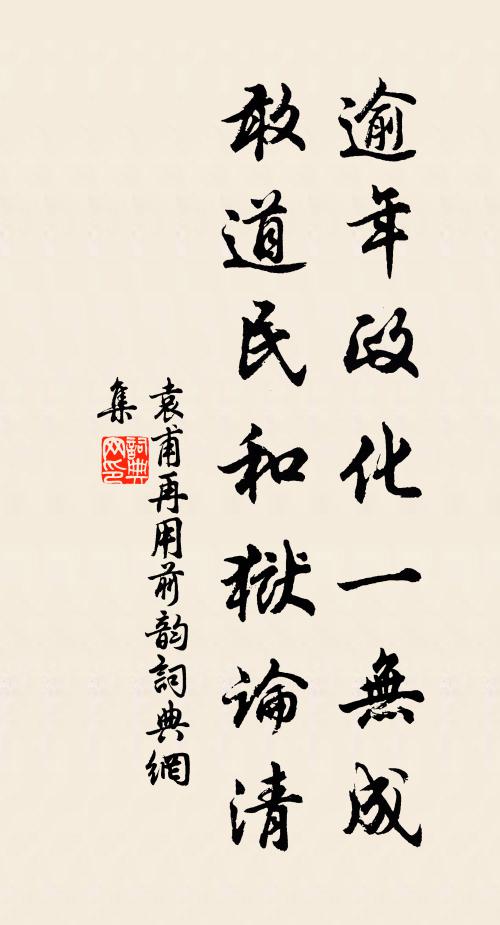 逾年政化一無成
敢道民和獄論清
袁甫再用前韵詞典網
集
詞典網印